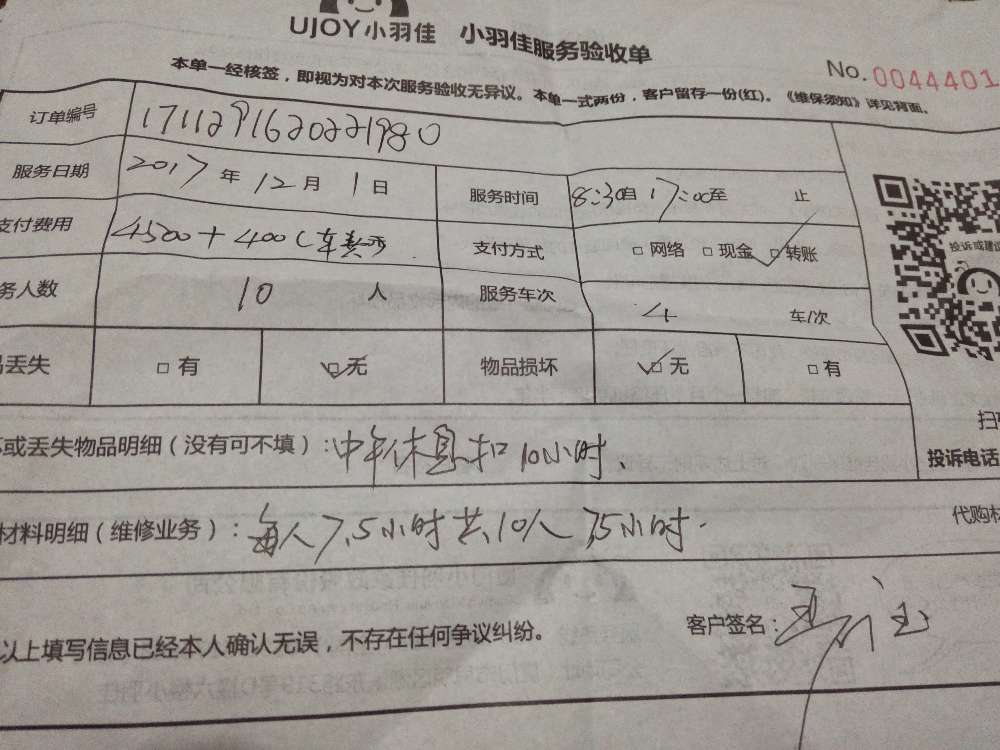 UJOY小羽佳 小羽佳服务验收单
No.0044401
本单一经核签，即视为对本次服务验收无异议。本单一式两份，客户留存一份(红)。《维保须知》详见背面。
订单编号 1711291620221980
服务日期 2017年12月1日 服务时间 8:30自17:00至 止
支付费用 4500+400(车费 支付方式 □网络 □现金 ☑转账
务人数 10人 服务车次 4 车/次
丢失 □有 ☑无 物品损坏 ☑无 □有
投诉或建议
坏或丢失物品明细（没有可不填）：中午休息扣10小时、
投诉电话
材料明细（维修业务）：每人7.5小时共10人75小时.
代购材
以上填写信息已经本人确认无误，不存在任何争议纠纷。
客户签名：